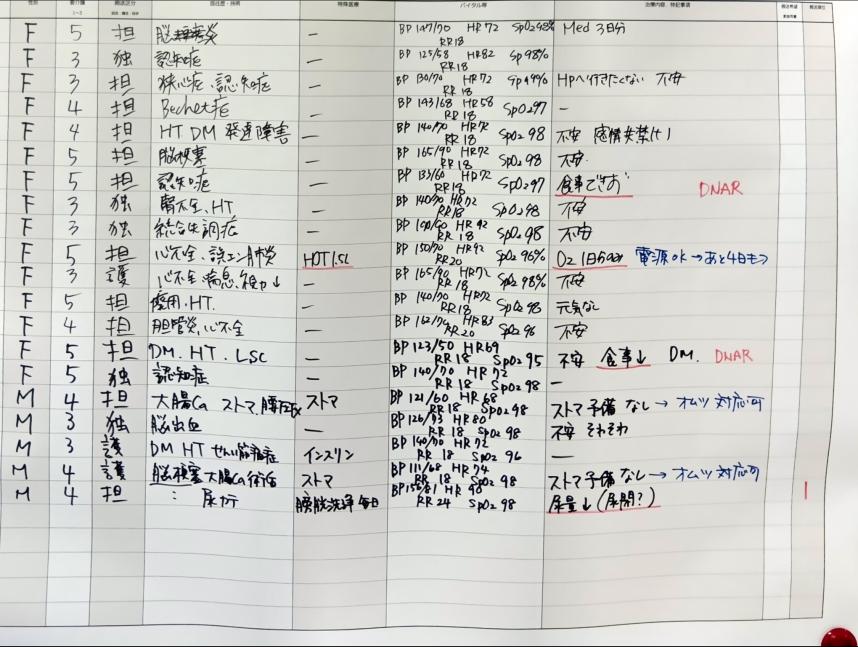 性別 要介護 搬送区分 既往歴・技術 特殊医療 バイタル等 治療内容、特記事項
F 5 担 — BP 147/70 HR 72 SpO2 98% Med 3日分
RR 18
F 3 独 認知症 — BP 125/58 HR82 Sp 98%
RR 18
F 3 担 狭心症、認知症 — BP 130/70 HR 72 Sp 99% Hpへ行きたくない 不安
RR 18
F 4 担 Bechet症 — BP 143/68 HR 58 SpO2 97 —
RR 18
F 4 担 HT DM 発達障害 — BP 140/70 HR 72 SpO2 98 不安 感情失禁(+)
RR 18
F 5 担 脳梗塞 — BP 165/90 HR72 SpO2 98 不安
RR 18
F 5 担 認知症 — BP 133/60 HR72 SpO2 97 食事できず DNAR
RR 18
F 3 独 腎不全、HT — BP 140/70 HR 72 SpO2 98 不安
RR18
F 3 独 統合失調症 — HR 92 SpO2 98 不安
RR 18
F 5 担 心不全、誤エン肺炎 HOT 1.5L BP 150/70 HR 92 SpO2 96% O2 電源OK→あと4日もつ
RR20
F 3 護 心不全、喘息、視力↓ — BP 165/90 HR72 SpO2 98% 不安
RR 18
F 5 担 HT. — BP 140/70 HR72 SpO2 98 元気なし
RR 18
F 4 担 胆管炎、心不全 — BP 162/74 HR83 SpO2 96 不安
RR 20
F 5 担 DM. HT. LSC — BP 123/50 HR69 不安 食事↓ DM. DNAR
RR 18 SpO2 95
F 5 独 認知症 — BP 140/70 HR 72 —
RR 18 SpO2 98
M 4 担 大腸Ca ストマ、腰圧迫 ストマ BP 121/60 HR 68 ストマ予備 なし→オムツ対応可
RR 18 SpO2 98
M 3 独 脳出血 — BP 126/73 HR 80 不安 そわそわ
RR 18 SpO2 98
M 3 護 DM HT せきずい インスリン BP 140/70 HR 72 —
RR 18 SpO2 96
M 4 護 脳梗塞 大腸Ca術後 ストマ BP 111/68 HR 74 ストマ予備 なし→オムツ対応可
RR 18 SpO2 98
M 4 担 : 膀胱洗浄 毎日 BP 156/81 HR 98 尿量↓(尿閉?)
RR 24 SpO2 98